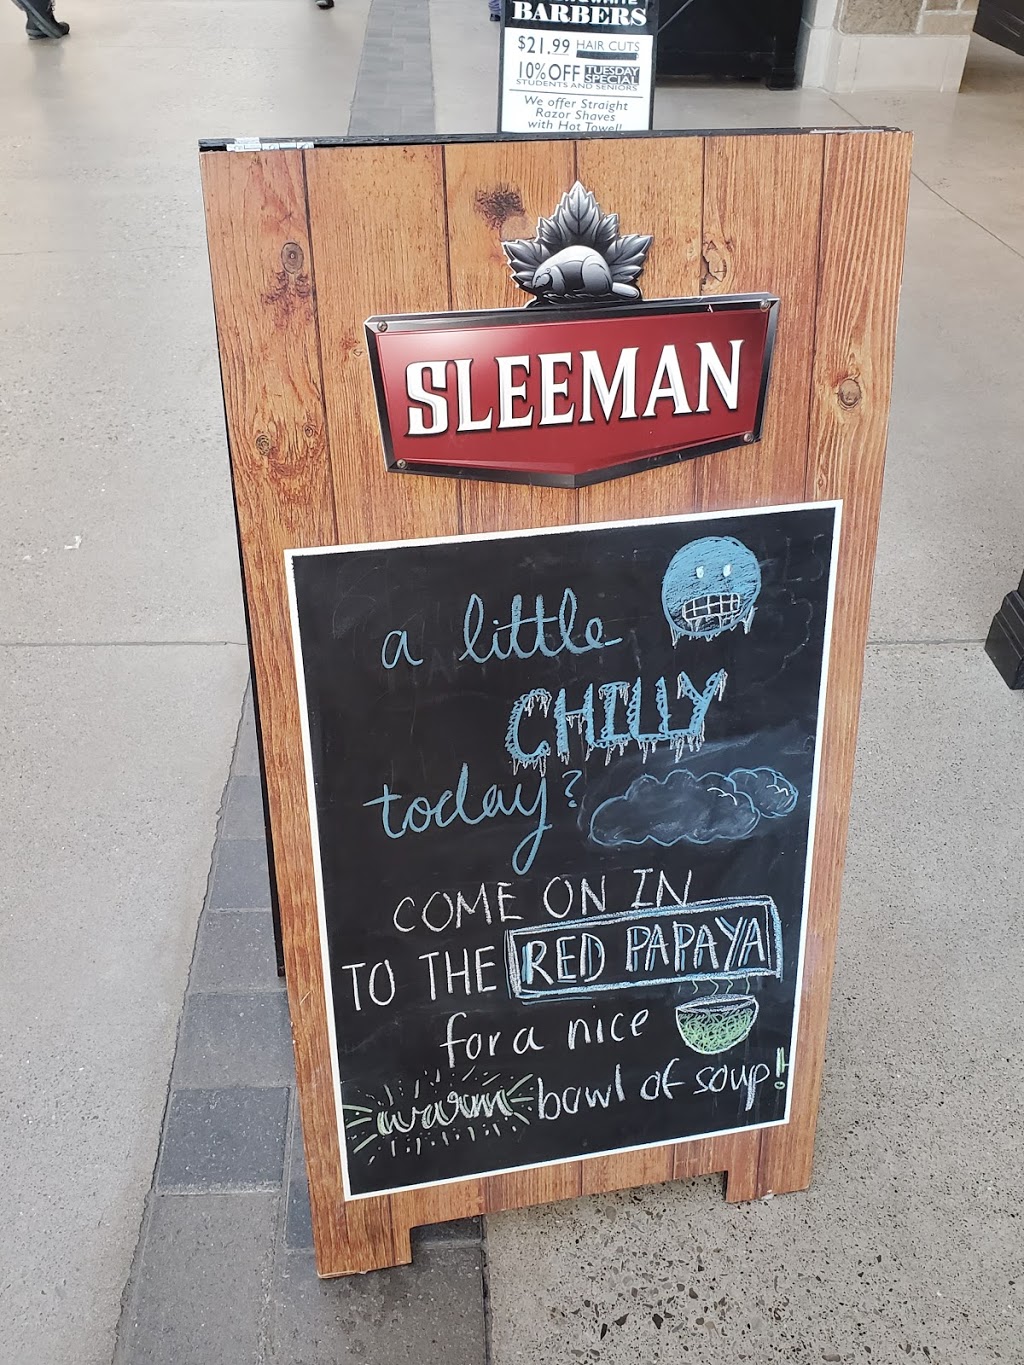 BARBERS
$21.99 HAIR CUTS
10% OFF TUESDAY SPECIAL
STUDENTS AND SENIORS
We offer Straight
Razor Shaves
with Hot Towel!
SLEEMAN
a little
CHILLY
today?
COME ON IN
TO THE RED PAPAYA
for a nice
warm bowl of soup!